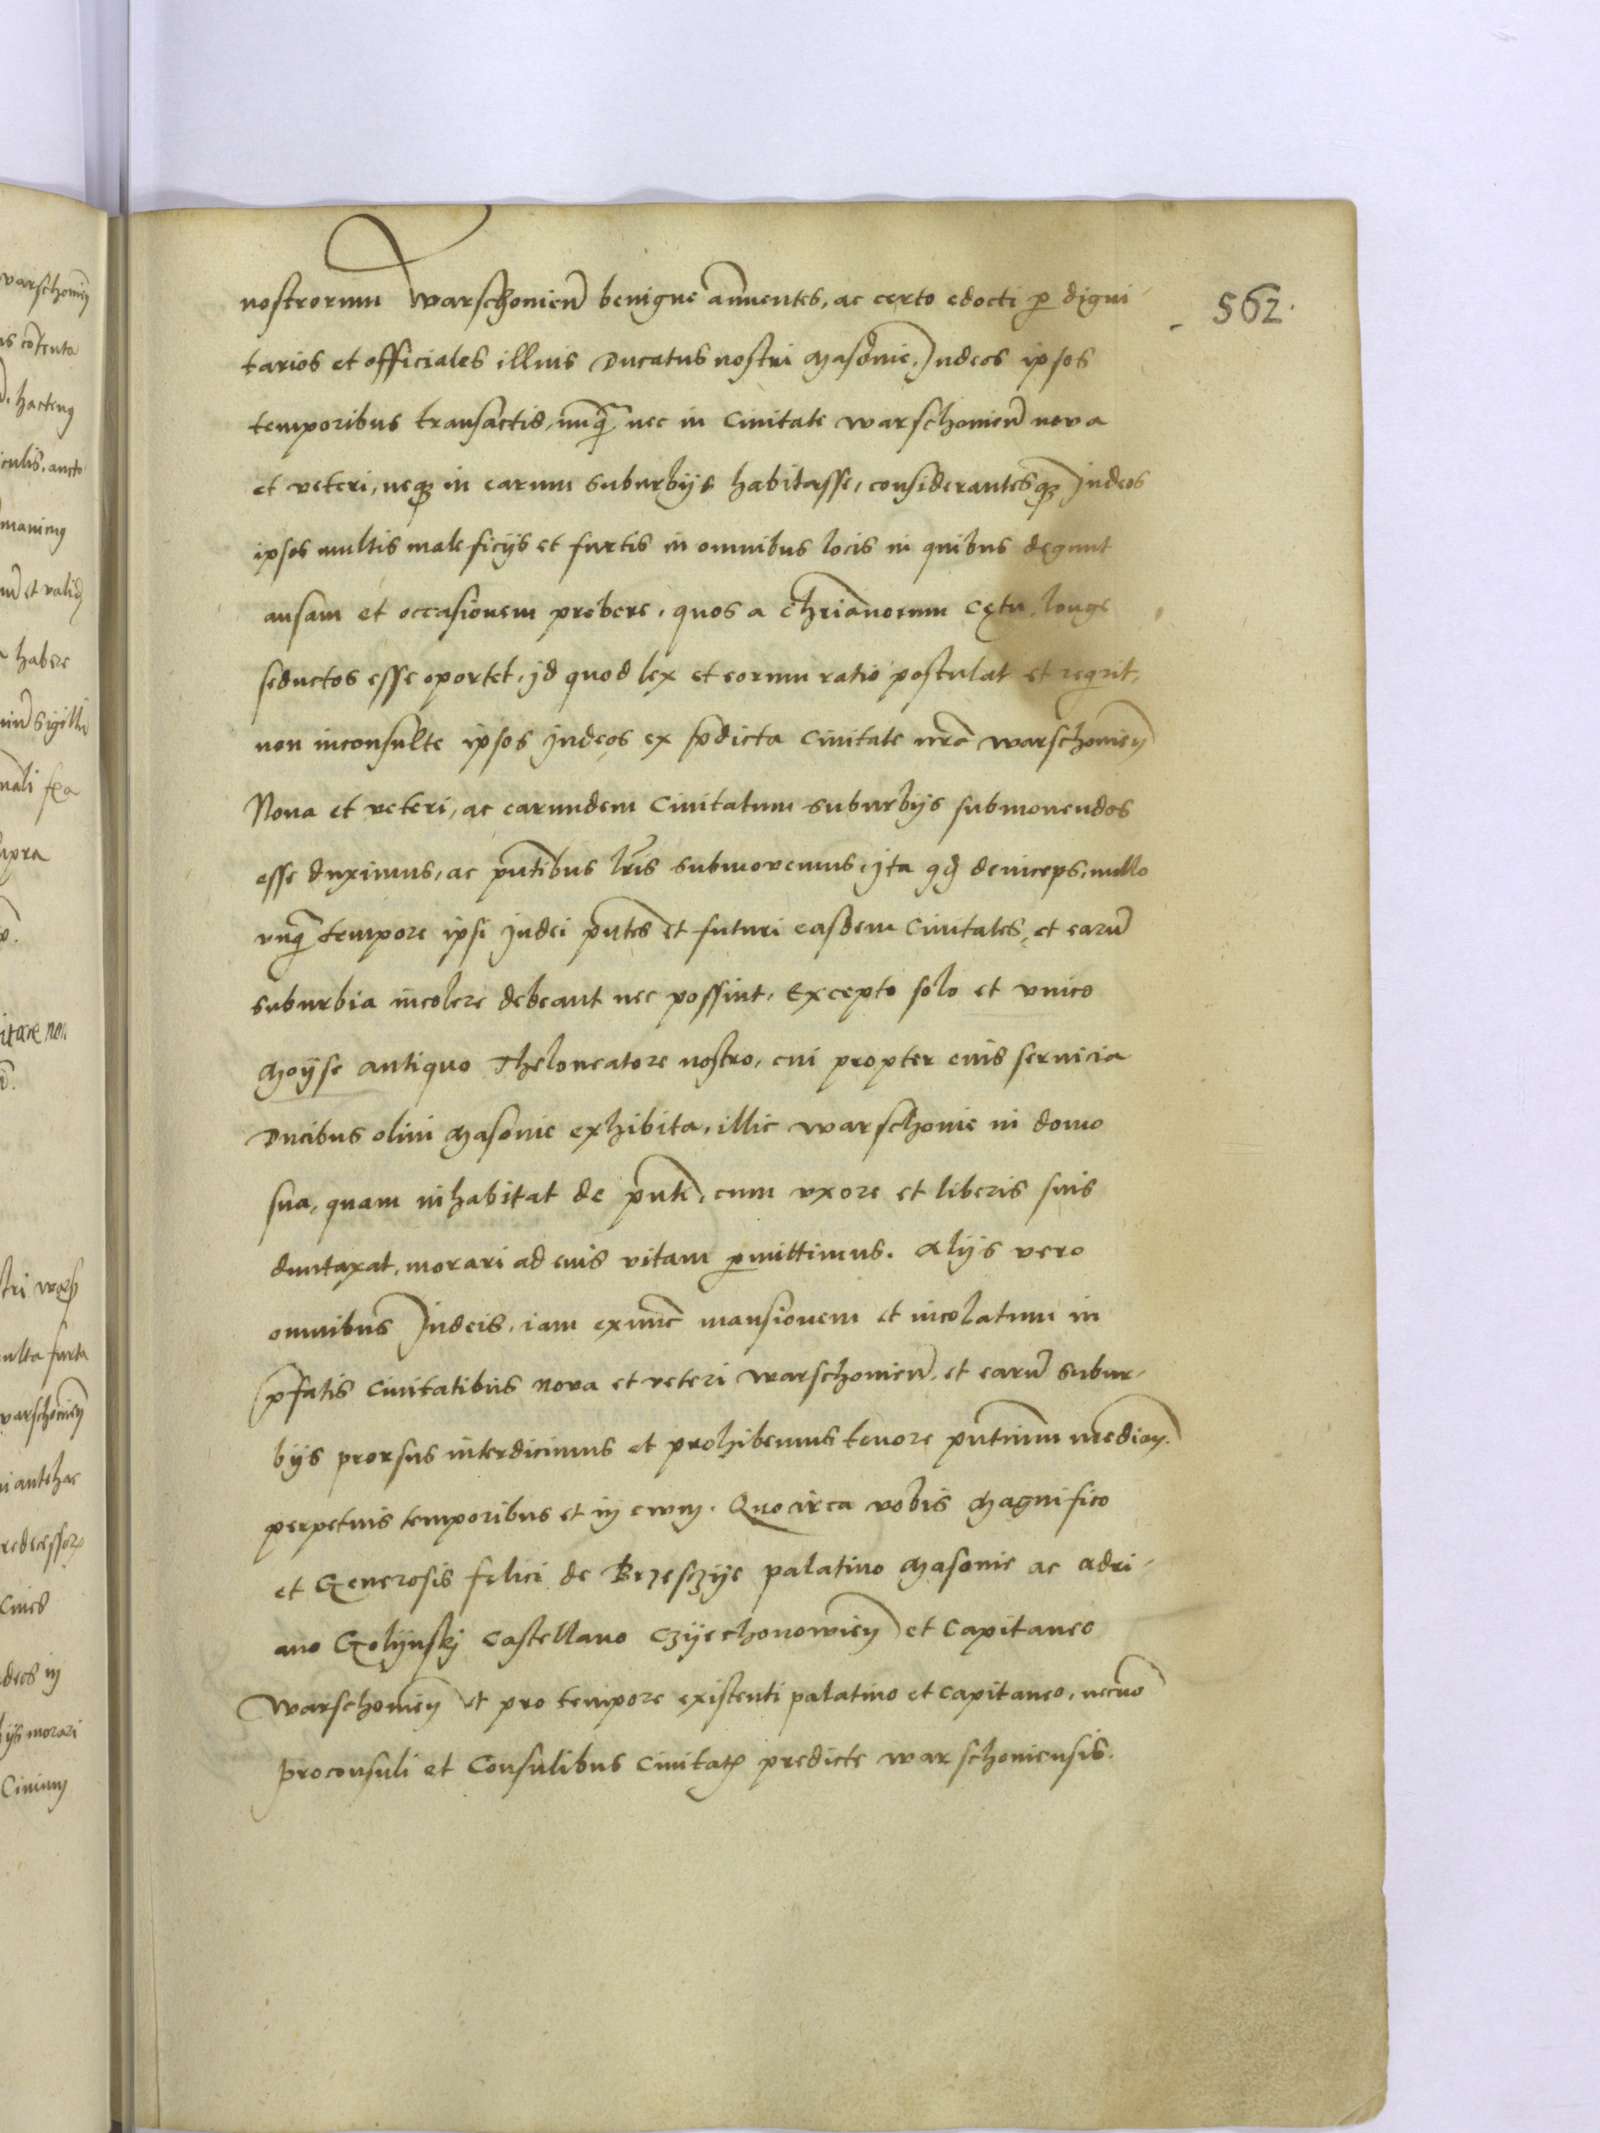 562.
nostrorum Warschonien̄ benigne an̄uentes, ac certo edocti p digni-
tarios et officiales illius Ducatus nostri Masouie, Judeos ipsos
temporibus transactis, nunq̄ nec in Ciuitate warschonien̄ noua
et veteri, neq3 in earum suburbijs habitasse, considerantesq3 Judeos
ipsos multis maleficijs et furtis in omnibus locis in quibus degunt
ansam et occasionem prebere, quos a chrianorum cętu, longe
seductos esse oportet, jd quod lex et eorum ratio postulat et reqrit,
non inconsulte ipsos Judeos ex pdicta Ciuitate nrā warschonieñ
Noua et veteri, ac earundem Ciuitatum suburbijs submouendos
esse duximus, ac pn̄tibus lr̄is submouemus, jta qd deinceps, nullo
vnq̄ tempore ipsi Judei pn̄tes et futuri easdem Ciuitates, et earū
suburbia incolere debeant nec possint, Excepto solo et vnico
Moijse antiquo Theloneatore nostro, cui propter eius seruicia
Ducibus olim Masouie exhibita, illic warschouie in domo
sua, quam inhabitat de pn̄ti, cum vxore et liberis suis
duntaxat, morari ad eius vitam pmittimus. Alijs vero
omnibus Judeis, iam exnūc mansionem et incolatum in
pfatis Ciuitatibus Noua et veteri warschonien̄, et earū subur-
bijs prorsus interdicimus et prohibemus tenore pn̄tium median̄.
perpetuis temporibus et in ewm. Quocirca vobis Magnifico
et Generosis felici de Brzesczije palatino Masouie ac Adri-
ano Golijnskj Castellano Czijechonowien̄ et Capitaneo
Warschonien̄ et pro tempore existenti palatino et capitaneo, necnō
proconsuli et Consulibus Ciuitat predicte warschoniensis.